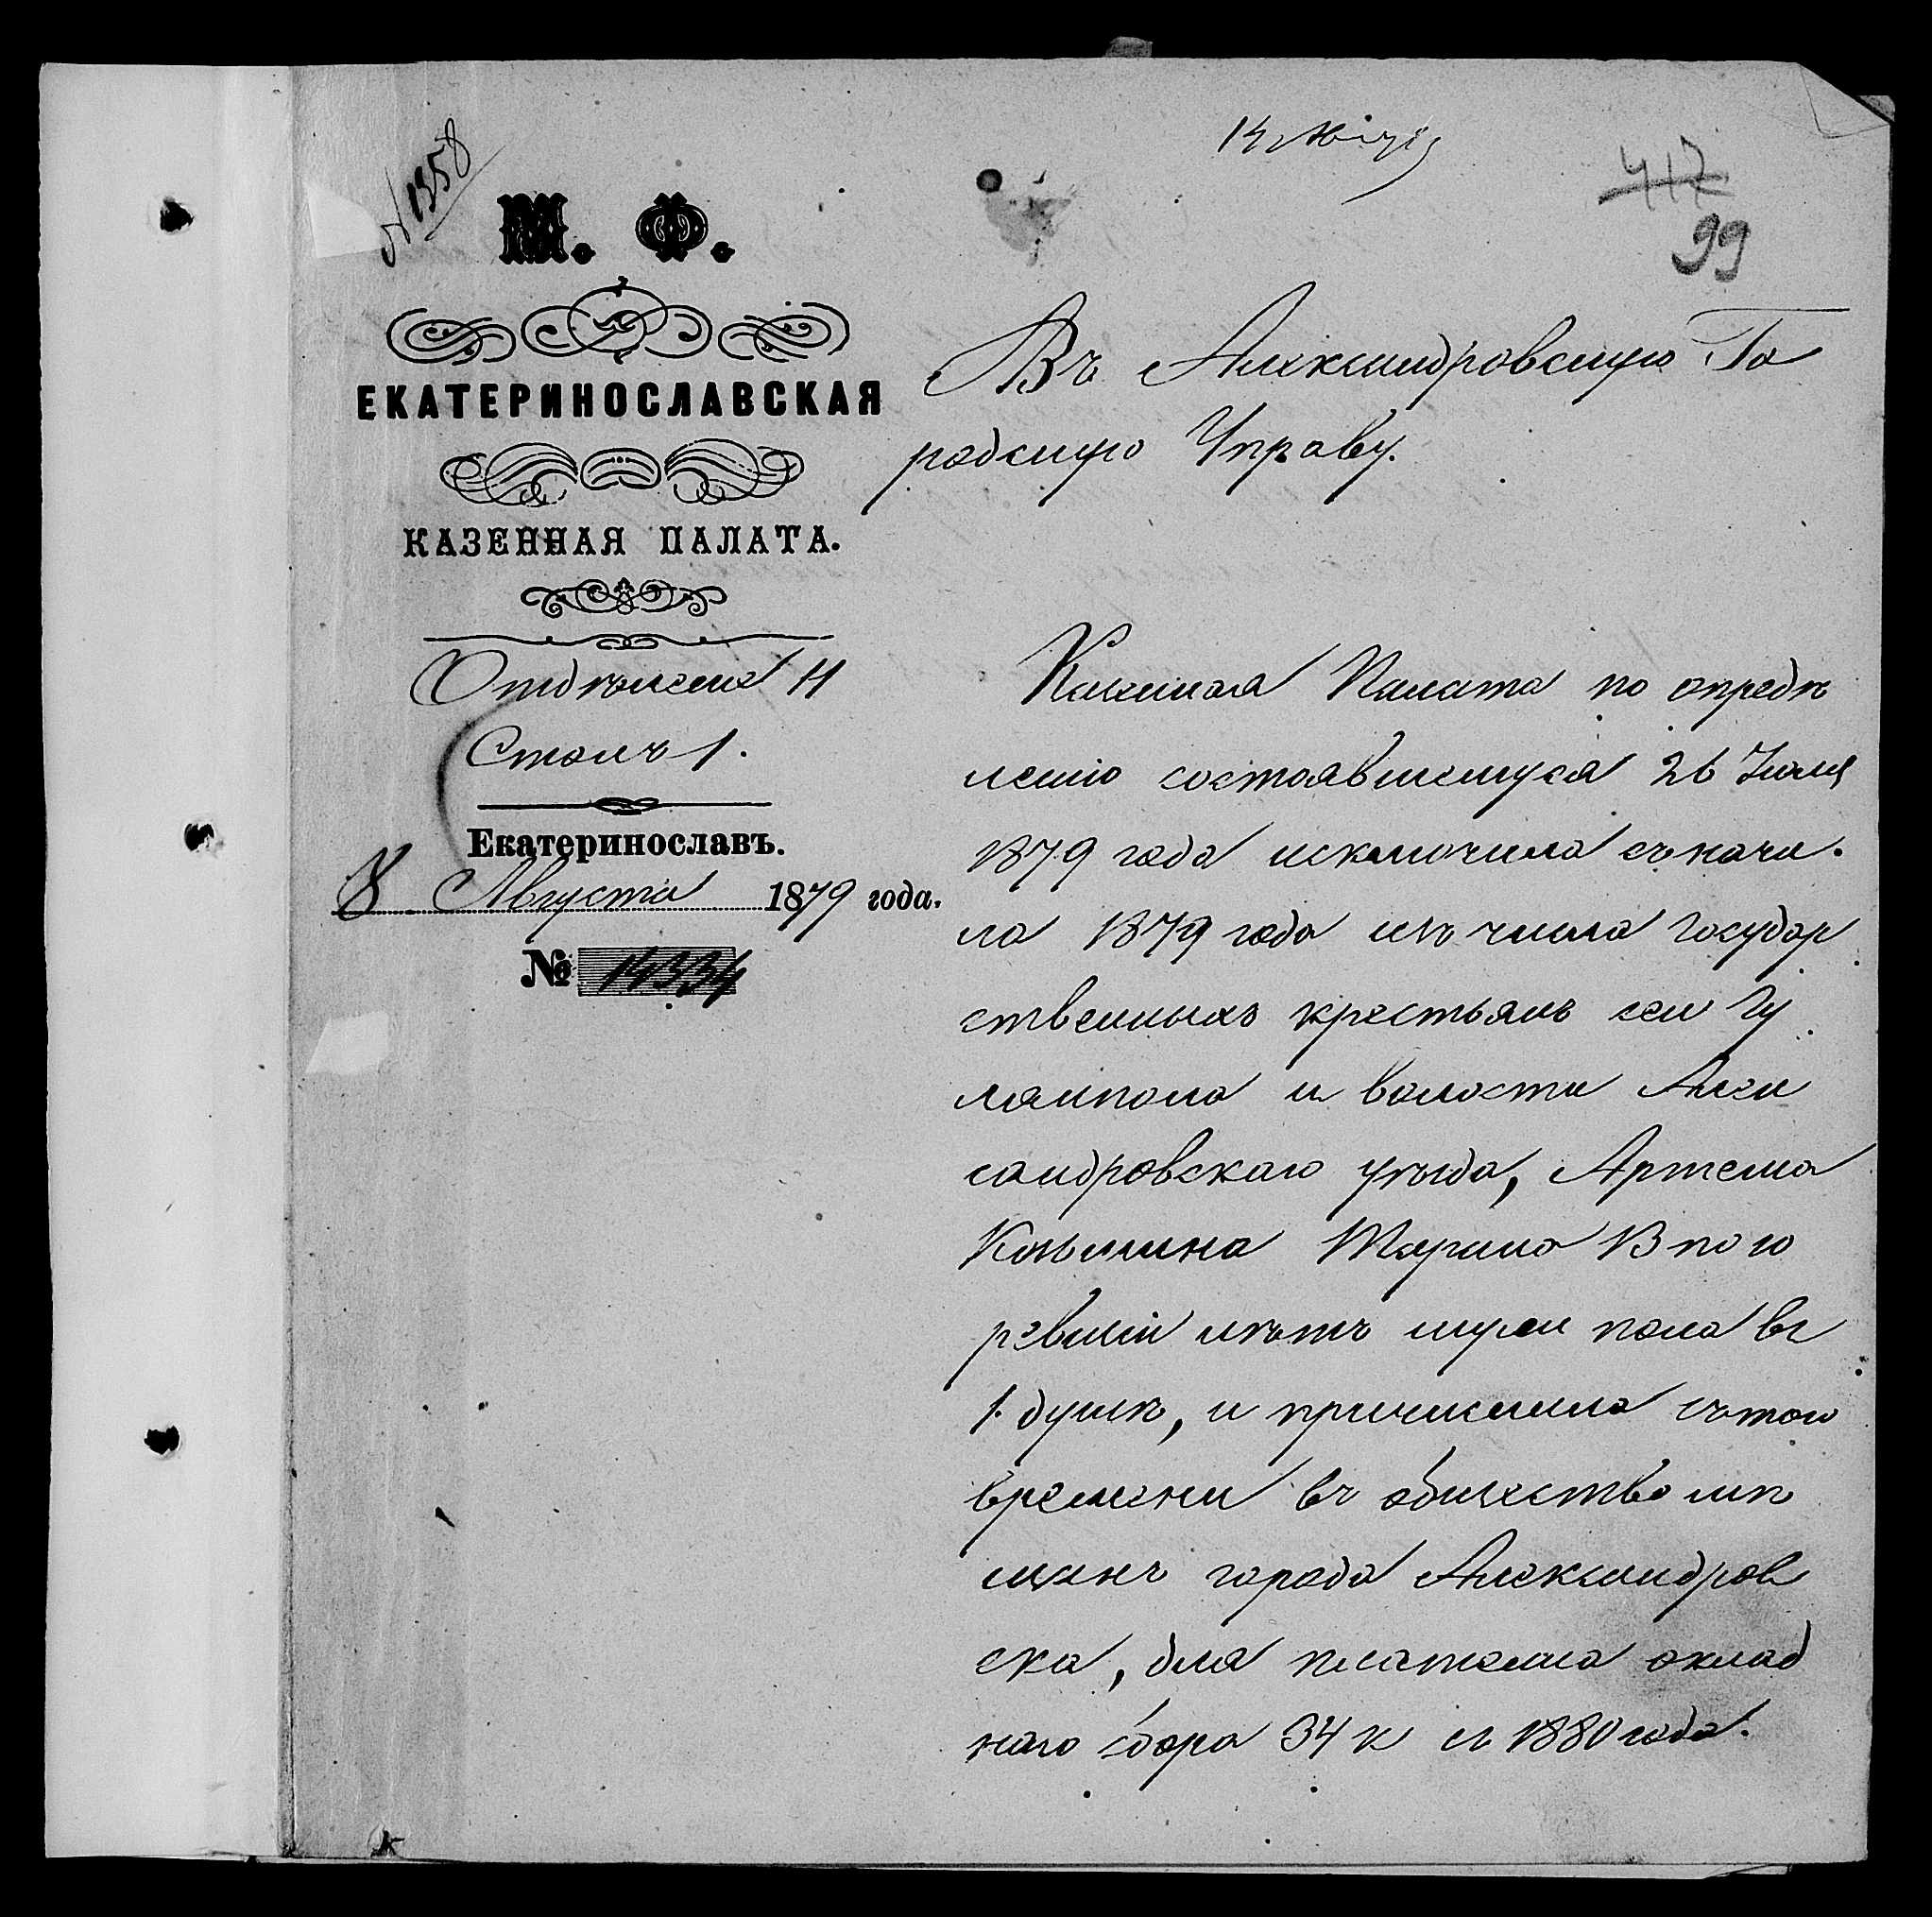 № 1358
417
99
М. Ф.
ЕКАТЕРИНОСЛАВСКАЯ
КАЗЕННАЯ ПАЛАТА.
Отдѣленіе II
Столъ 1.
Екатеринославъ.
8 Августа 1879 года.
№ 14334
Въ Александровскую Го
родскую Управу.
Казенная Палата по опредѣ
ленію состоявшемуся 26 Іюля
1879 года исключила съ нача
ла 1879 года изъ числа государ
ственныхъ крестьянъ села Гу
ляйполя и волости Алек
сандровскаго уѣзда, Артема
Козьмина 13 по 10
ревизіи лѣтъ муж пола въ
1 душѣ, и причислила съ того
времени въ общество мѣ
щанъ города Александров
ска, для платежа оклад
наго сбора 34 к съ 1880 года.